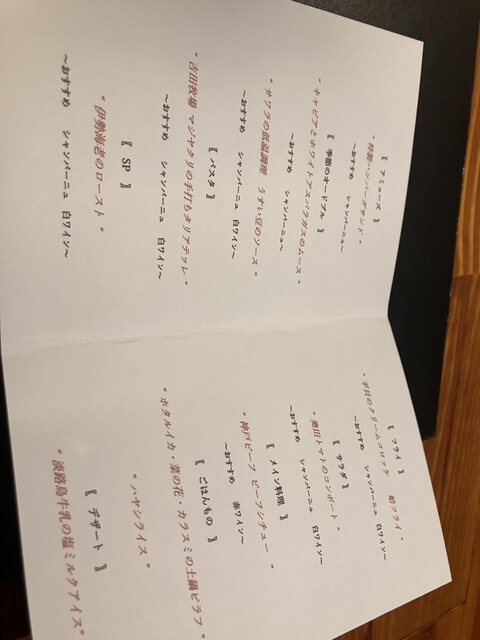 『 アミューズ 』
“ 特製ハンバーグサンド ”
～おすすめ　シャンパーニュ～
『 季節のオードブル 』
“ キャビアとホワイトアスパラガスのムース ”
～おすすめ　シャンパーニュ～
“ サワラの低温調理　うすい豆のソース ”
～おすすめ　シャンパーニュ　白ワイン～
『 パスタ 』
“ 吉田牧場 マジャクリの手打ちタリアテッレ ”
～おすすめ　シャンパーニュ　白ワイン～
『 SP 』
“ 伊勢海老のロースト ”
～おすすめ　シャンパーニュ　白ワイン～
『 フライ 』
“ 平貝のクリームコロッケ　蛤フライ ”
～おすすめ　シャンパーニュ　白ワイン～
『 サラダ 』
“ 奥田トマトのコンポート ”
～おすすめ　シャンパーニュ　白ワイン～
『 メイン料理 』
“ 神戸ビーフ　ビーフシチュー ”
～おすすめ　赤ワイン～
『 ごはんもの 』
“ ホタルイカ・菜の花・カラスミの土鍋ピラフ ”
“ ハヤシライス ”
『 デザート 』
“ 淡路島牛乳の塩ミルクアイス ”